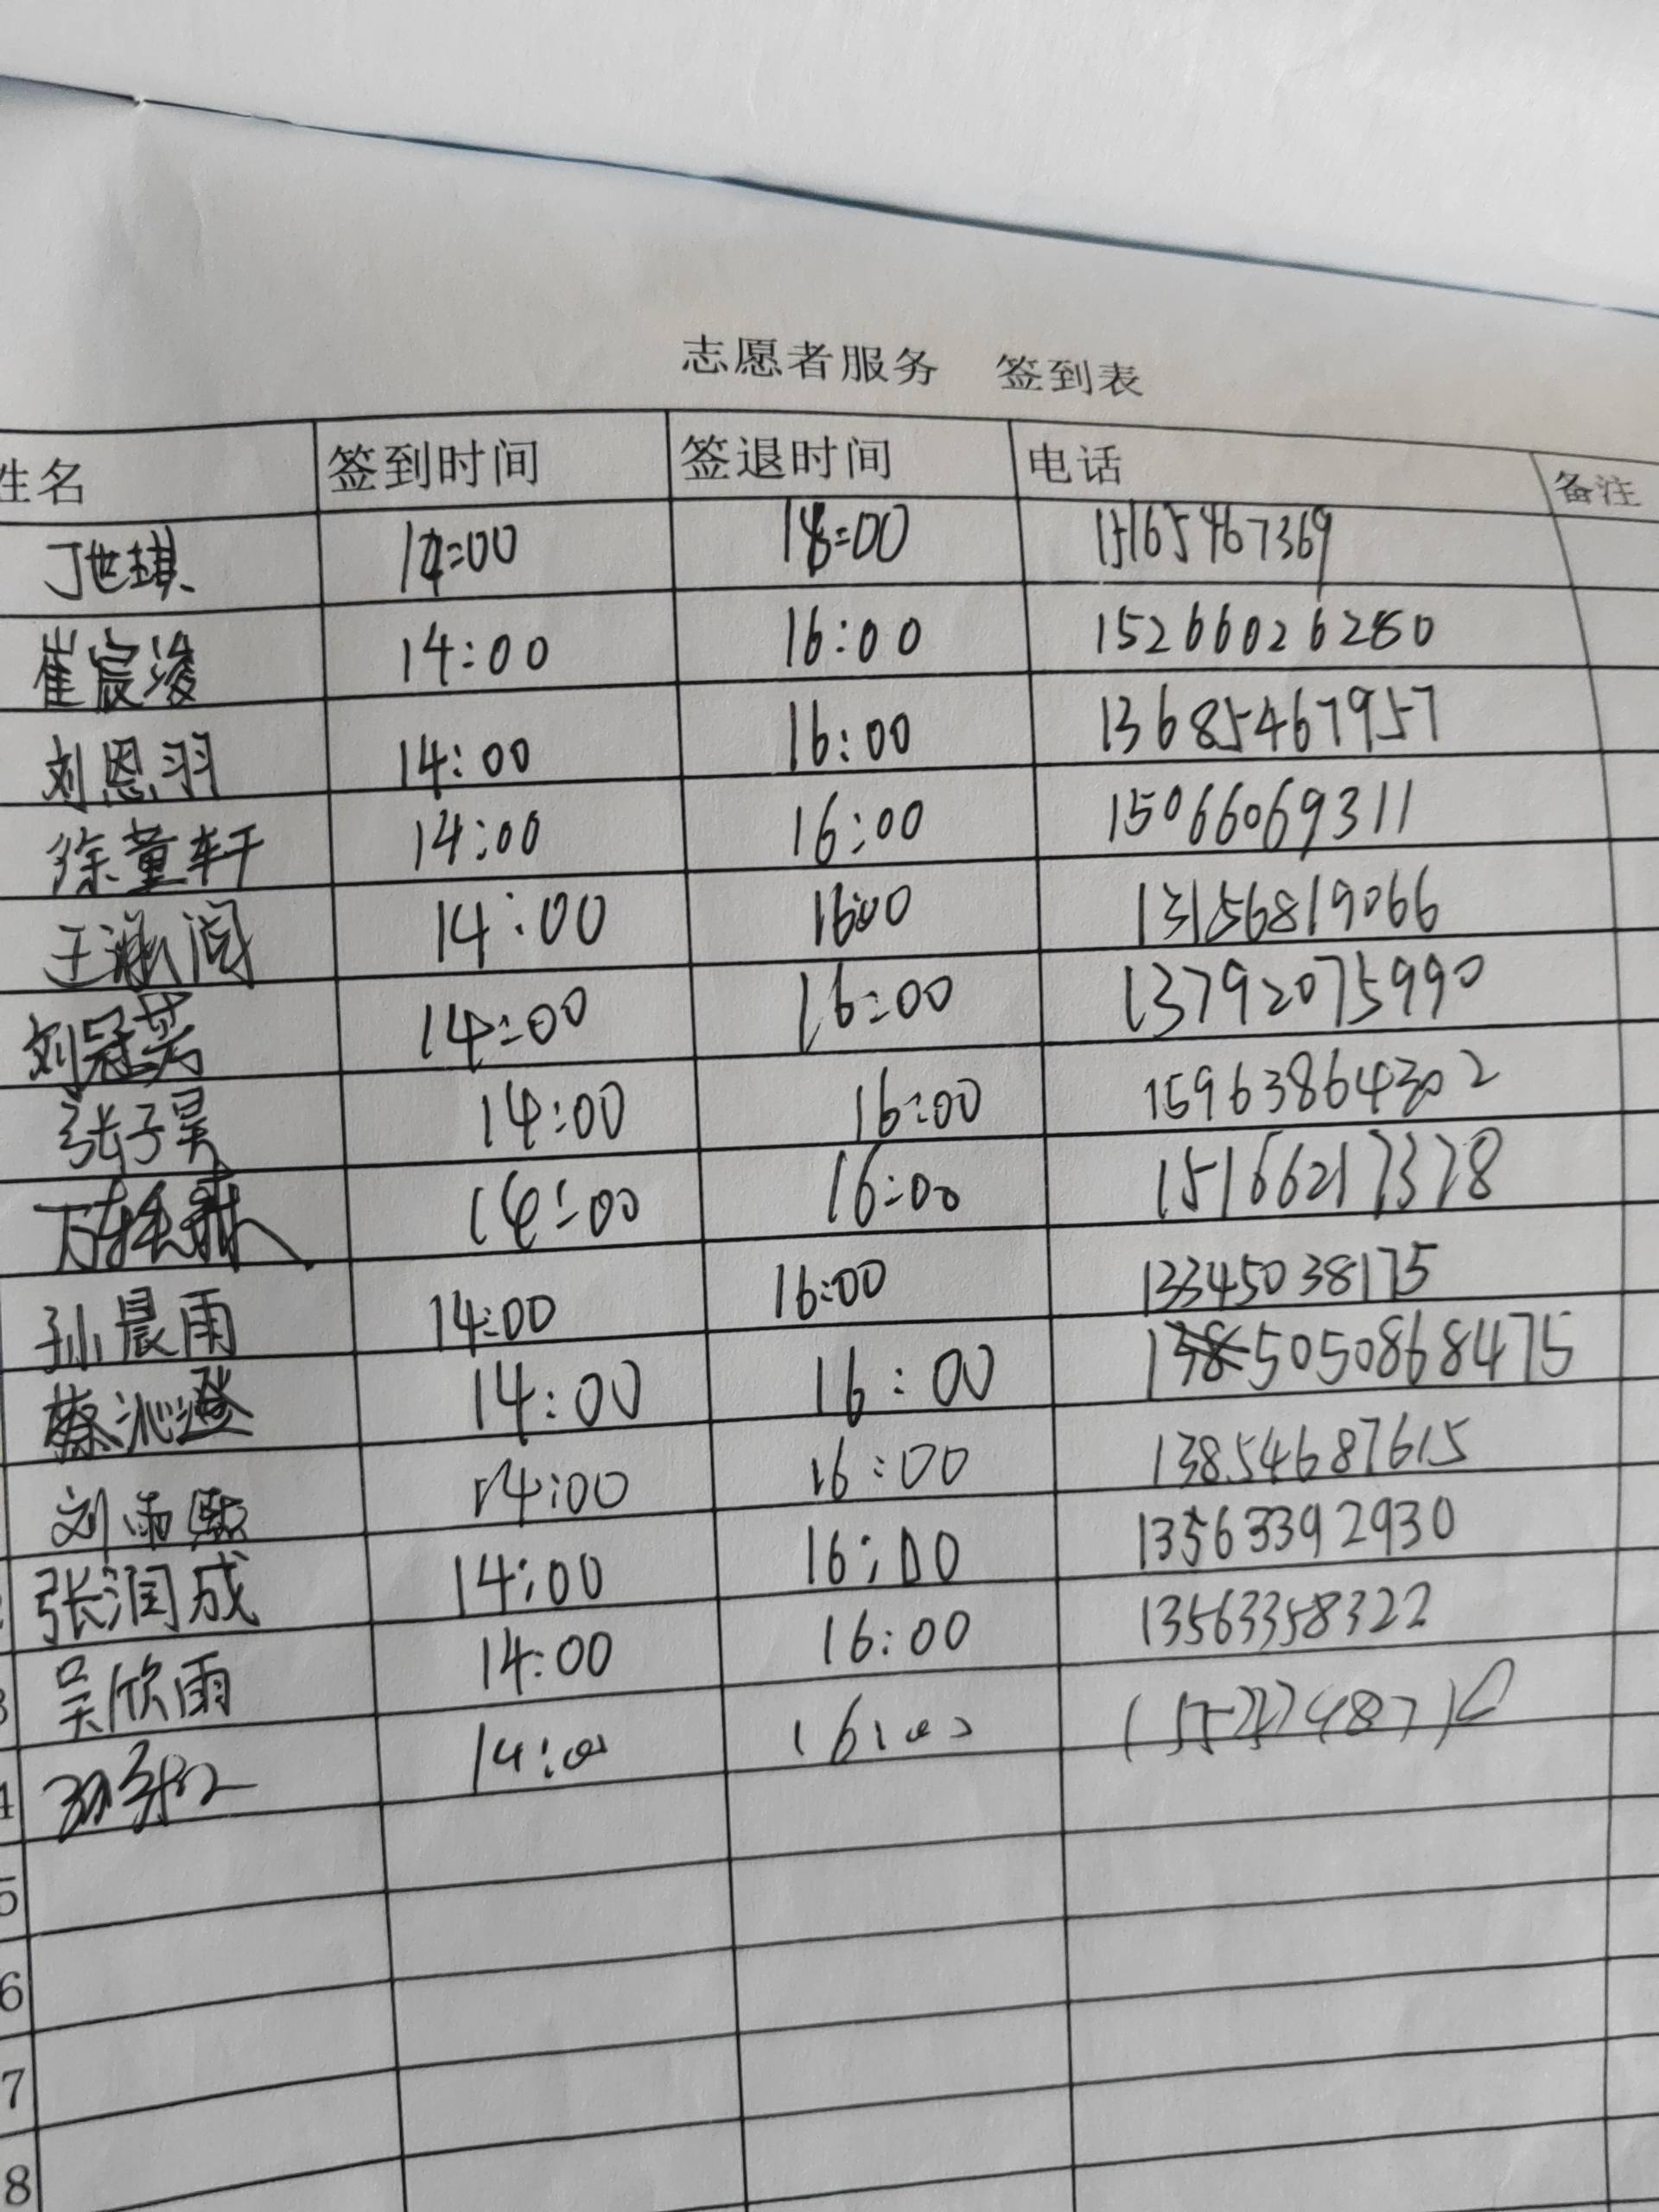 志愿者服务 签到表
姓名 签到时间 签退时间 电话 备注
丁世琪 14:00 16:00 15165467369
崔宸浚 14:00 16:00 15266026280
刘恩羽 14:00 16:00 13685467957
徐童轩 14:00 16:00 15066069311
王涵闻 14:00 16:00 13156819066
刘冠芳 14:00 16:00 13792075990
张子昊 14:00 16:00 15963864302
14:00 16:00 15166217378
孙晨雨 14:00 16:00 13345038175
蔡沁澄 14:00 16:00 15050868475
刘雨熙 14:00 16:00 13854687615
张润成 14:00 16:00 13563392930
3 吴欣雨 14:00 16:00 13563358322
4 14:00 16:00
5
6
7
8